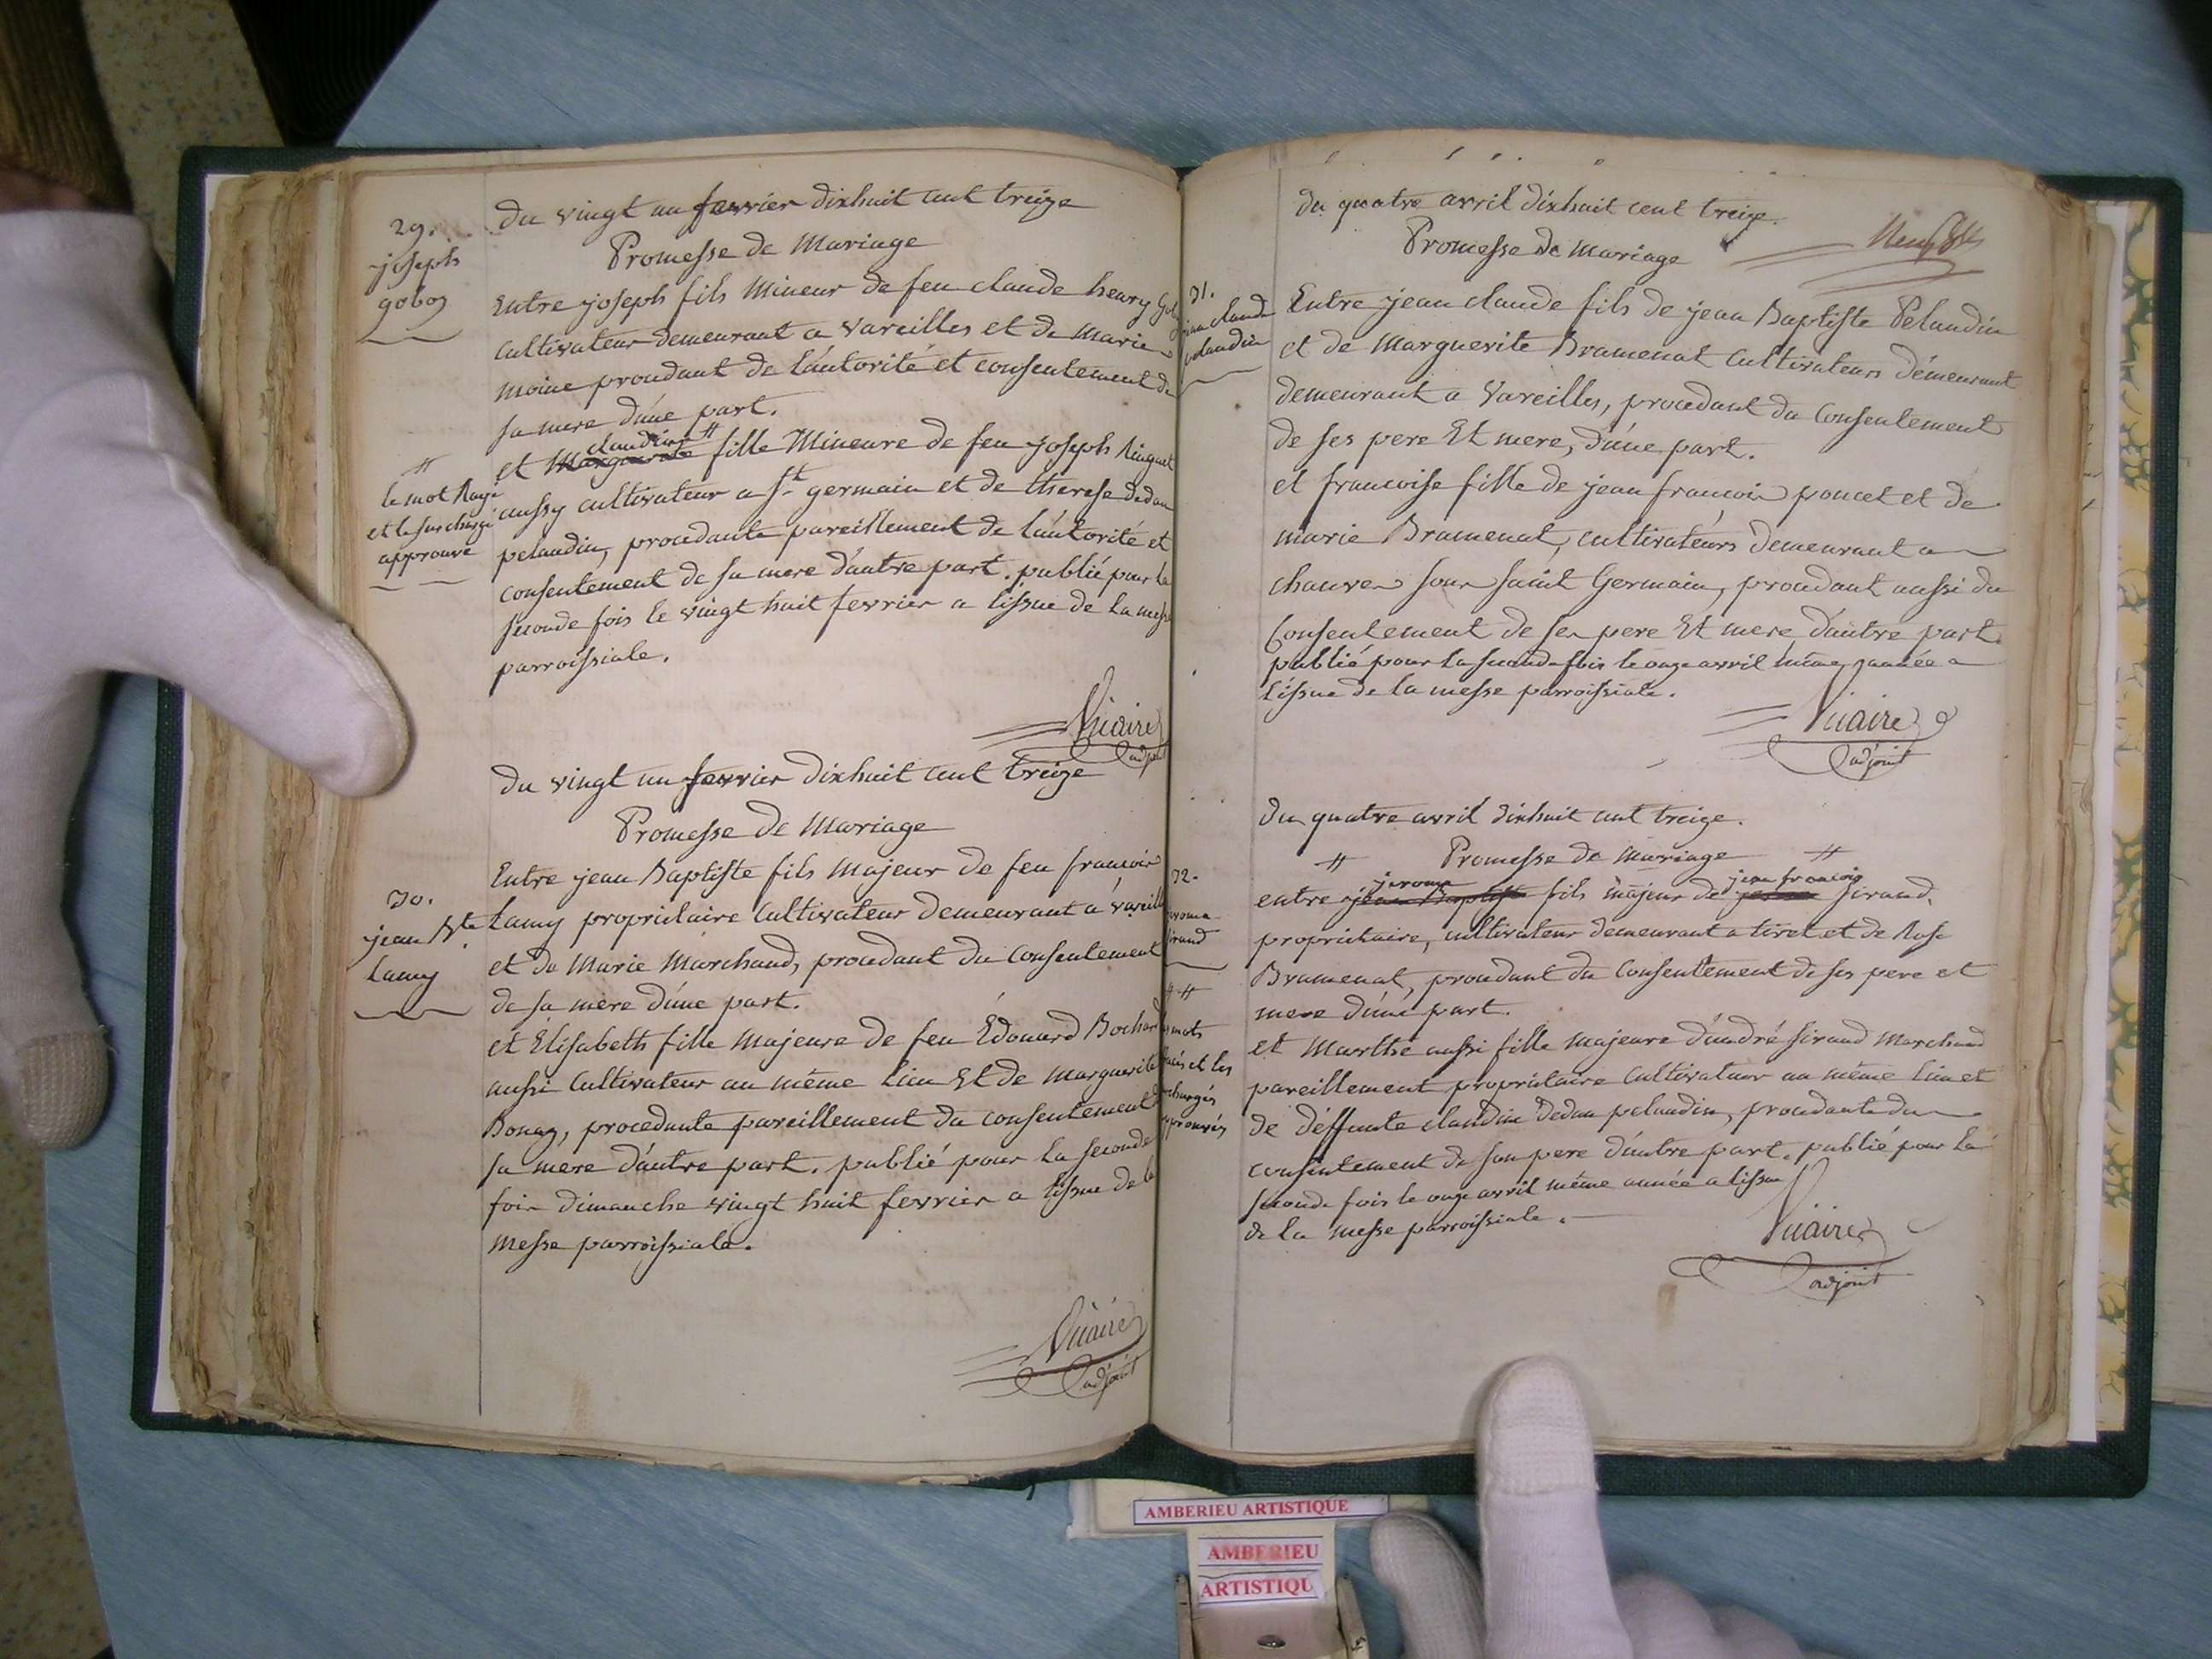 29.
joseph
goboz
du vingt un fevrier dixhuit cent treize
Promesse de Mariage
Entre joseph fils Mineur de feu claude henry
cultivateur demeurant a Vareilles et de Marie
moine procedant de l'autorité et consentement de
sa mere d'une part.
claudine #
et Marguerite fille Mineure de feu joseph Ringuet
aussy cultivateur a St germain et de therese dedan
pelaudin, procedante pareillement de l'autorité et
consentement de sa mere d'autre part. publié pour la
seconde fois le vingt huit fevrier a lissue de la messe
parroissiale.
#
le mot Rayé
et le surchargé
approuvé
Vicaire
adjoint
du vingt un fevrier dixhuit cent treize
Promesse de Mariage
30.
jean Bte
Lamy
Entre jean Baptiste fils Majeur de feu francois
Lamy propriétaire Cultivateur demeurant a vareille
et de Marie Marchand, procedant du Consentement
de sa mere d'une part.
et Elisabeth fille Majeure de feu Edouard Bochard
aussi Cultivateur au même Lieu Et de Marguerite
Bonaz, procedante pareillement du consentement
sa mere d'autre part. publié pour la seconde
fois dimanche vingt huit fevrier a lissue de la
messe parroissiale.
Vicaire
adjoint
du quatre avril dixhuit cent treize.
Promesse de Mariage
31.
jean claude
pelaudin
Entre jean claude fils de jean Baptiste Pelaudin
et de Marguerite Bramenat Cultivateurs démeurant
demeurant a Vareilles, procedant du Consentement
de ses pere Et mere, d'une part.
et francoise fille de jean francois poncet et de
marie Bramenat, cultivatéurs demeurant a
chauves sous saint Germain, procedant aussi du
Consentement de ses pere Et mere d'autre part.
publié pour la seconde fois le onze avril même année a
l'issue de la messe parroissiale.
Vicaire
adjoint
du quatre avril dixhuit cent treize.
# Promesse de Mariage #
32.
jerome
sirand
jerome jean francois
entre jean Baptiste fils majeur de jerome sirand,
propriétaire, cultivateur demeurant a tiret et de Rose
Bramenat, procedant du Consentement de ses pere et
mere d'une part.
et Marthe aussi fille majeure d'andré sirand Marchand
pareillement propriétaire Cultivateur au même lieu et
de déffunte claudine Dedan pelaudin, procedante du
consentement de son pere d'autre part. publié pour la
seconde fois le onze avril même année a lissue
de la messe parroissiale.
# #
mots
rayés et les
surchargés
approuvés
Vicaire
adjoint
AMBERIEU ARTISTIQUE
AMBERIEU
ARTISTIQU